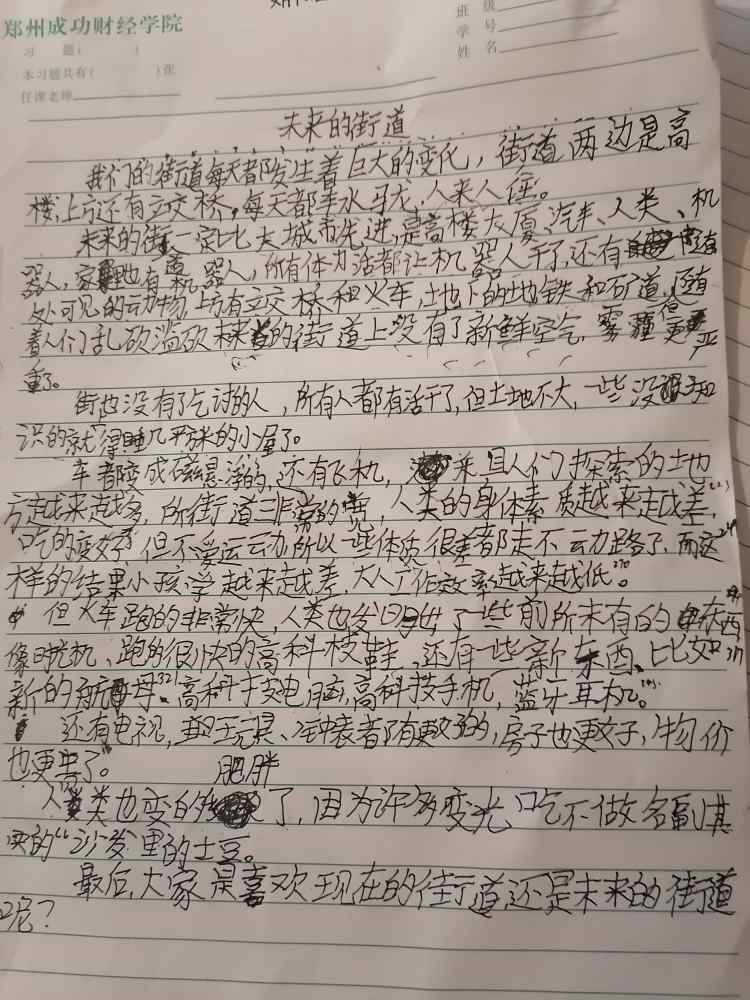 郑州成功财经学院
班 级
习 题( )
学 号
本习题共有( )张
姓 名
任课老师
未来的街道
我们的街道每天都发生着巨大的变化，街道两边是高
楼，上方还有立交桥，每天都车水马龙，人来人往。
未来的街一定比大城市先进，是高楼大厦、汽车、人类、机
器人，家里也有机器人，所有体力活都让机器人干了，还有
处可见的动物，上方有立交桥和火车，土地下的地铁和矿道，还有
着人们乱砍滥砍未来的街道上没有了新鲜空气，雾霾也更严
重了。
街也没有了乞讨的人，所有人都有活干了，但土地不大，一些没知
识的就得睡几平方米的小屋了。
车都变成磁悬浮的，还有飞机，来且人们探索的地
方越来越多，所街道非常的宽，人类的身体素质越来越差，
吃的变好，但不爱运动所以一些体质很差都走不动路了，而这
样的结果小孩学越来越差，大人工作效率越来越低。
但火车跑的非常快，人类也发明出了一些前所未有的东西
像时光机、跑的很快的高科技鞋，还有一些新东西、比如
新的航母、高科技电脑，高科技手机，蓝牙耳机。
还有电视，钟表都有更好的，房子也更好，物价
也更贵了。
肥胖
人类也变的了，因为许多变光吃不做名副其
实的“沙发里的土豆。
最后，大家是喜欢现在的街道还是未来的街道
呢？